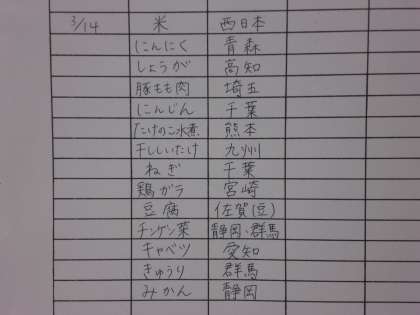 3/14 米 西日本
にんにく 青森
しょうが 高知
豚もも肉 埼玉
にんじん 千葉
たけのこ水煮 熊本
干ししいたけ 九州
ねぎ 千葉
鶏ガラ 宮崎
豆腐 佐賀(豆)
チンゲン菜 静岡・群馬
キャベツ 愛知
きゅうり 群馬
みかん 静岡